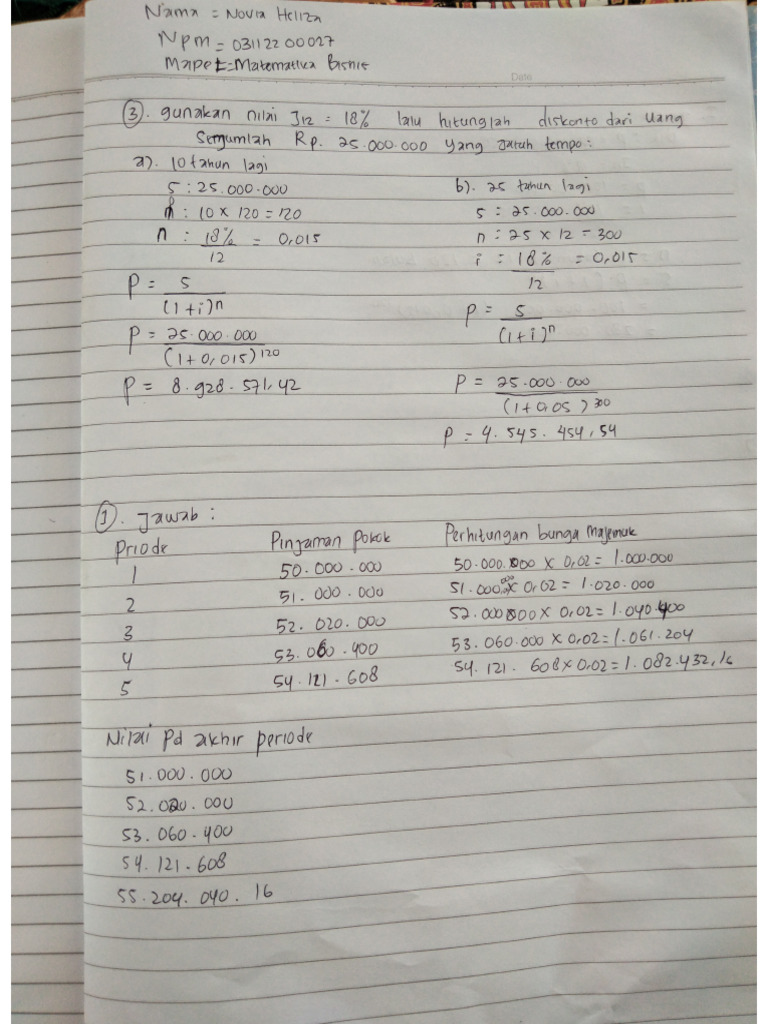 Nama = Novia Heliza
Npm = 0311220027
Mapel = Matematika Bisnis
Date
③. gunakan nilai J12 = 18% lalu hitunglah diskonto dari uang
Sejumlah Rp. 25.000.000 yang jatuh tempo:
a). 10 tahun lagi
S : 25.000.000
n : 10 x 120 = 120
n : 18%/12 = 0,015
P = S/(1+i)n
P = 25.000.000/(1+0,015)120
P = 8.928.571,42
b). 25 tahun lagi
S : 25.000.000
n : 25 x 12 = 300
i : 18%/12 = 0,015
P = S/(1+i)n
P = 25.000.000/(1+0,05)300
P = 4.545.454,54
①. Jawab :
Priode Pinjaman Pokok Perhitungan bunga majemuk
1 50.000.000 50.000.000 x 0,02 = 1.000.000
2 51.000.000 51.000.000 x 0,02 = 1.020.000
3 52.020.000 52.000000 x 0,02 = 1.040.400
4 53.060.400 53.060.000 x 0,02 = 1.061.204
5 54.121.608 54.121.608 x 0,02 = 1.082.432,16
Nilai Pd akhir periode
51.000.000
52.020.000
53.060.400
54.121.608
55.204.040.16